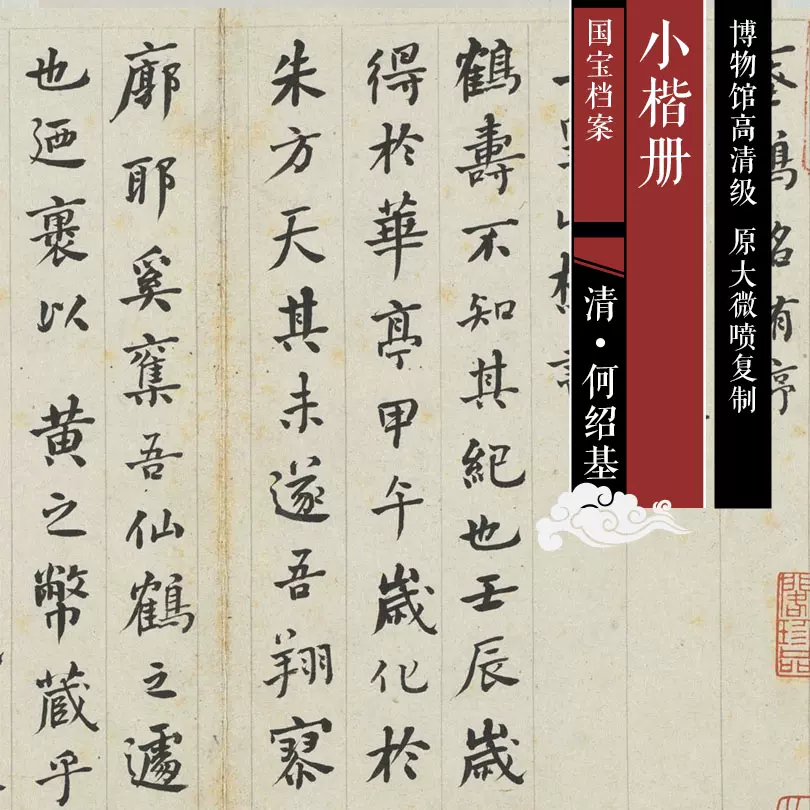 博物馆高清级 原大微喷复制
小楷册
国宝档案
清·何绍基
鶴壽不知其紀也壬辰歲
得於華亭甲午歲化於
朱方天其未遂吾翔寥
廓耶奚奪吾仙鶴之遽
也廼裹以 黄之幣藏乎
閣珍品